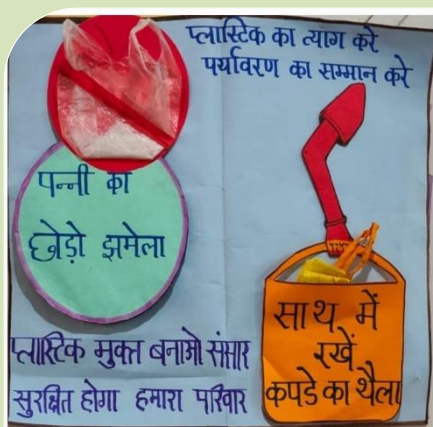 प्लास्टिक का त्याग करे
पर्यावरण का सम्मान करे
पन्नी का
छोड़ो झमेला
साथ में
रखें
कपडे का थैला
प्लास्टिक मुक्त बनाओ संसार
सुरक्षित होगा हमारा परिवार